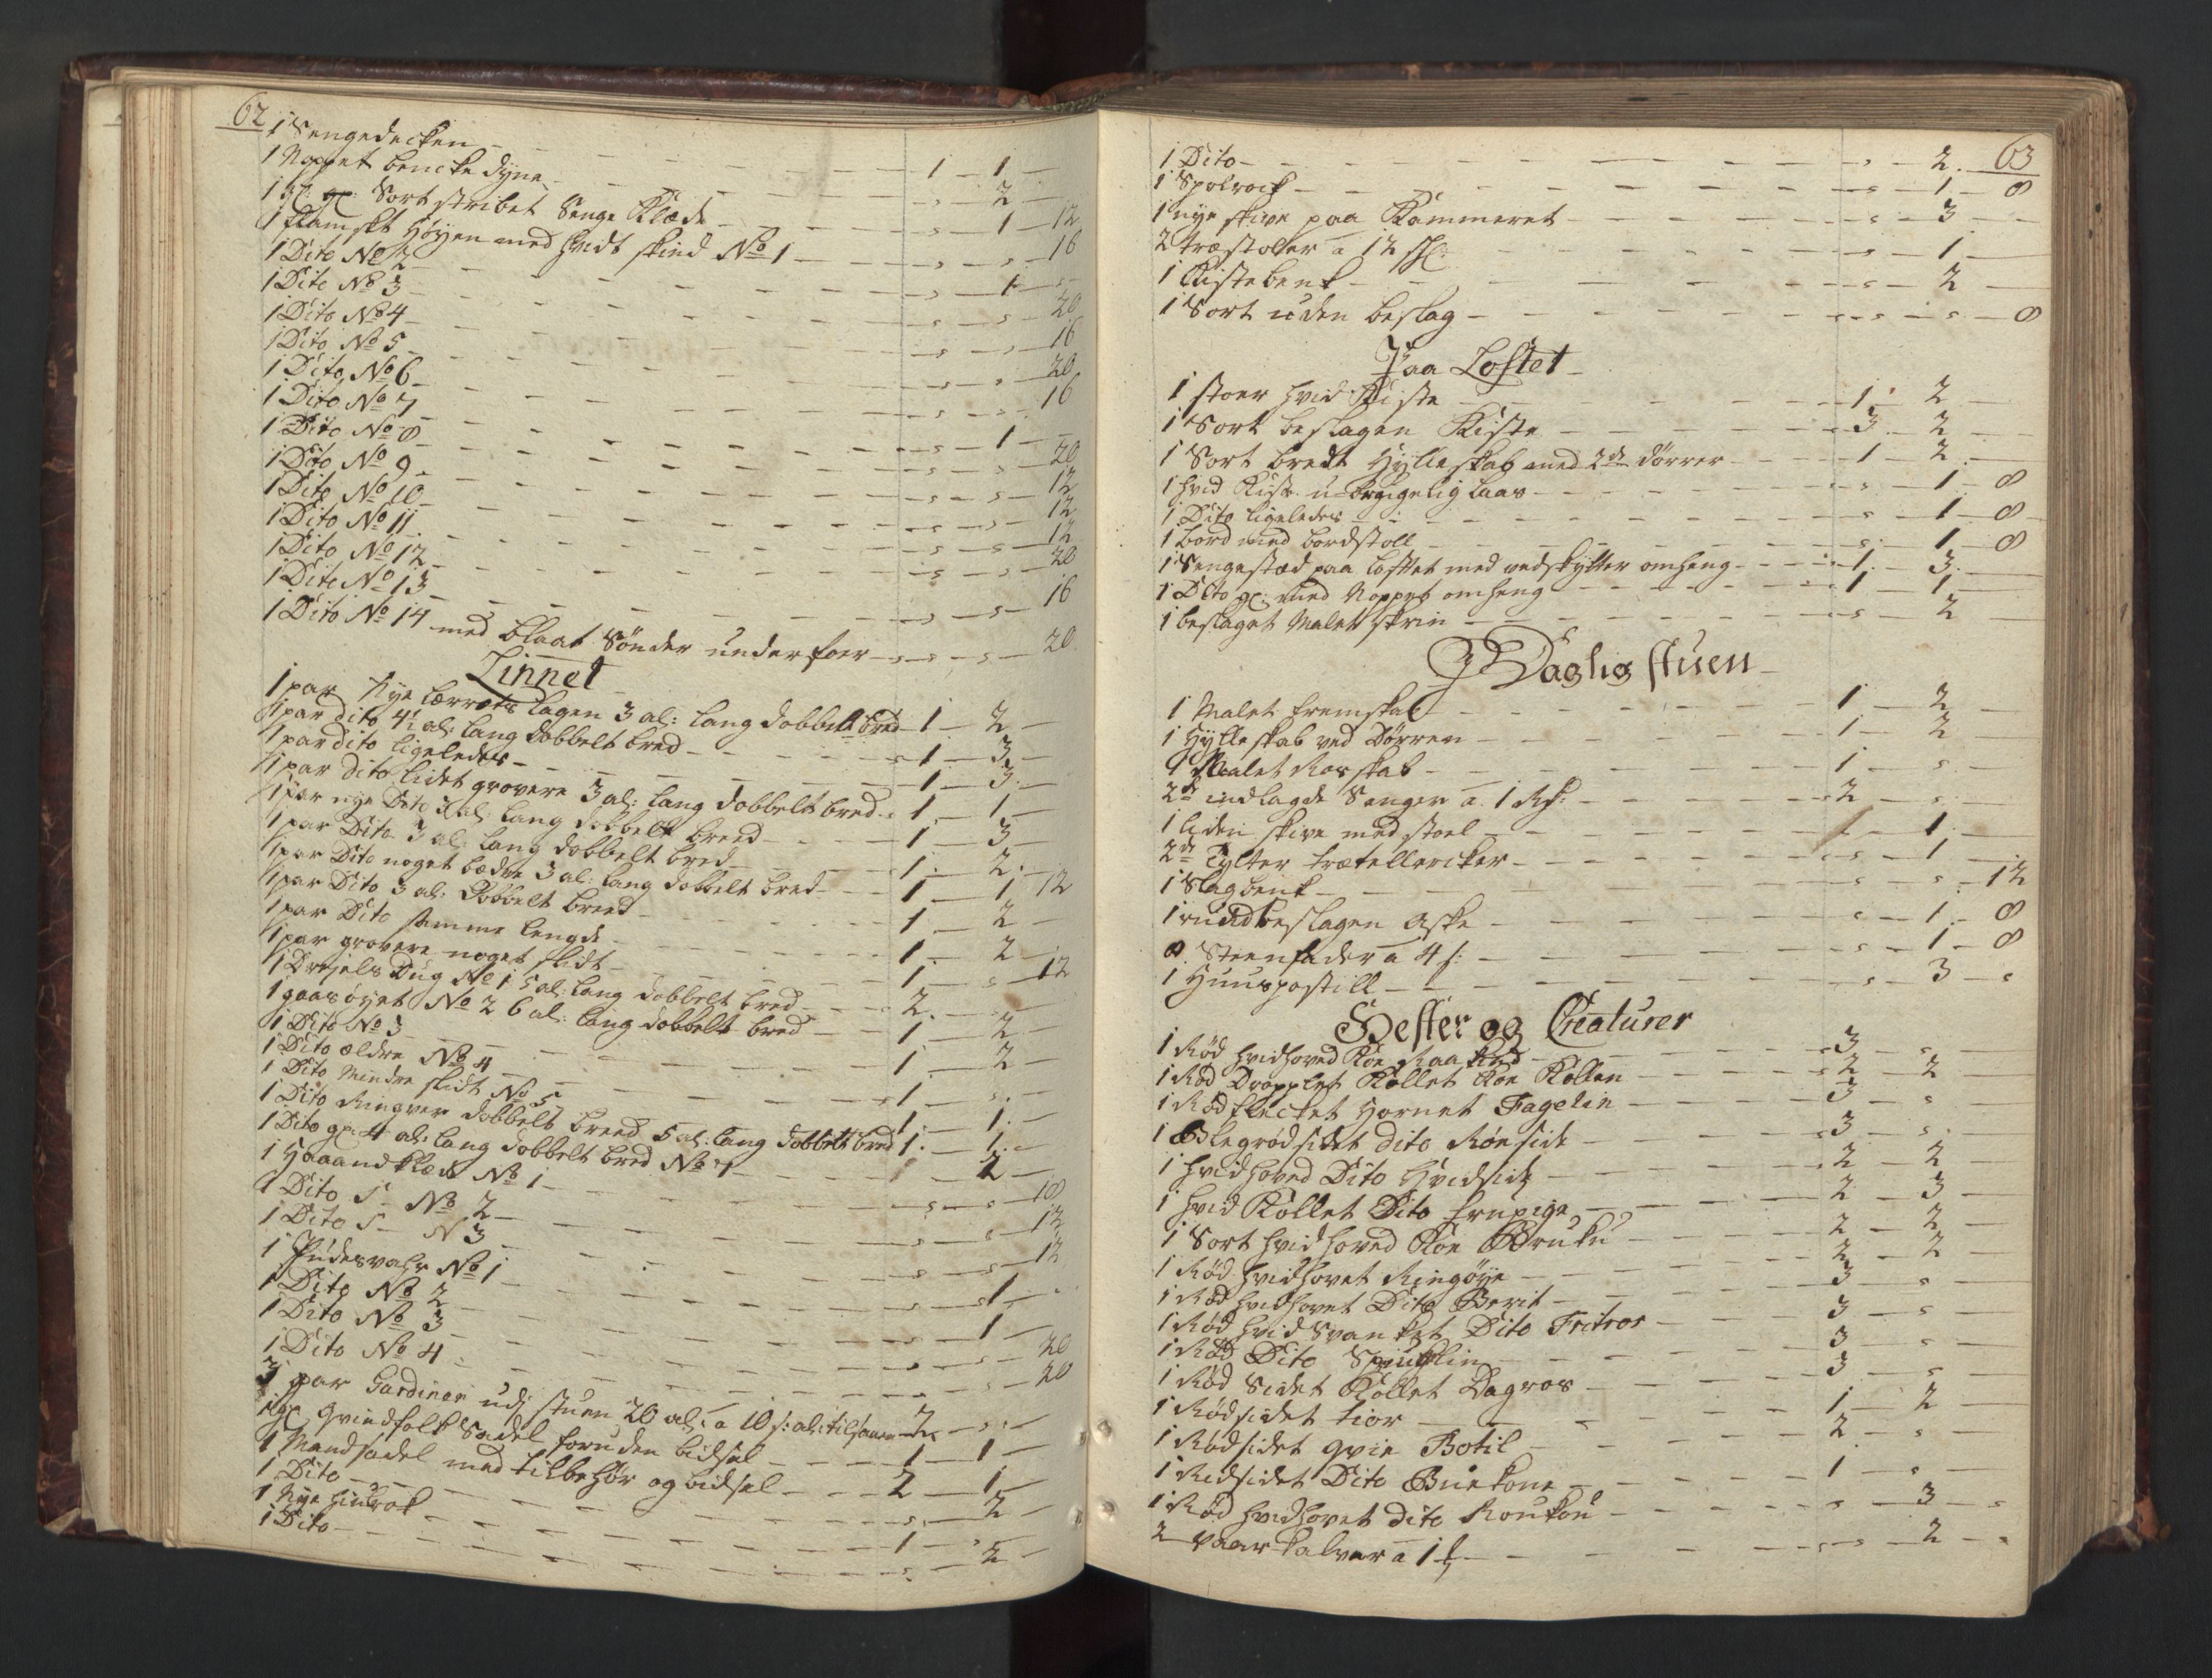 62
1 Sengedecken - - 1 - 1 -
1 Noppet bencke dyne - - s - 2 -
1 gl: Sort stribet Senge Klæde - - s - 1 - 12
1 flamskt Høyen med hvidt skind No 1 - - s - s - 16
1 Dito No 2 - - s - 1 - -
1 Dito No 3 - - s - s - 20
1 Dito No 4 - - s - s - 16
1 Dito No 5 - - s - s - 20
1 Dito No 6 - - s - s - 16
1 Dito No 7 - - s - 1 -
1 Dito No 8 - - s - s - 20
1 Dito No 9 - - s - s - 12
1 Dito No 10 - - s - s - 12
1 Dito No 11 - - s - s - 12
1 Dito No 12 - - s - s - 20
1 Dito No 13 - - s - s - 16
1 Dito No 14 med blaat Sönder underfoer - s - s - 20
Linnet
1 par nye lærrets lagen 3 al: lang dobbelt bred - 1 - 2 -
1 par dito 4½ al: lang dobbelt bred - - 1 - 3 -
1 par dito ligeledes - - 1 - 3 -
1 par dito lidet grovere 3 al: lang dobbelt bred - 1 - 1 -
1 par nye Dito 3 al: lang dobbelt breed - - 1 - 3 -
1 par Dito 3 al: lang dobbelt bred - - 1 - 2 -
1 par Dito noget bædre 3 al: lang dobbelt bred - - 1 - 1 - 12
1 par Dito 3 al: Dobbelt breed - - 1 - 2 -
1 par Dito samme lengde - - 1 - 2 -
1 par grovere noget slidt - - 1 - s - 12
1 Drejels Dug No 1 5 al: lang dobbelt bred - - 2 - -
1 gaasøyet No 2 6 al: lang dobbelt bred - - 1 - 2 -
1 Dito No 3 - - 1 - 2 -
1 Dito ældre No 4 - - 1 - s -
1 Dito Mindre slidt No 5 - - 1 - 1 -
1 Dito Ringver dobbelt breed 5 al: lang dobbelt bred 1 - 1 -
1 Dito gl: 4 al: lang dobbelt bred No 7 - - 2 -
1 Haaandklæde No 1 - - s - s - 18
1 Dito S - No 2 - - s - s - 12
1 Dito S - N 3 - - s - s - 12
1 Pudesvahr No 1 - - s - 1 -
1 Dito No 2 - - s - 1 -
1 Dito No 3 - - s - s - 20
1 Dito No 4 - - s - s - 20
3 par Gardiner udj stuen 20 al: a 10 s: al: tilsamen 2 - s -
1 gl: qvindfolk Sadel foruden bidsel - - 1 - 1 -
1 Mandsadel med tilbehør og bidsel - - 2 - 1 -
1 Dito - - s - 2 -
1 Nye hiulrok - - 1 - s -
1 Dito - - s - 2 -
63
1 Dito - - s - 2 -
1 Spolrock - - s - 1 - 8
1 nye skive paa Kammeret - - s - 3 -
2 træstoler a 12 sh: - - 1 -
1 Kistebenk - - s - 2 -
1 Sort uden beslag - - s - s - 8
Paa Loftet
1 stoer hvid Kiste - - 1 - 2 -
1 Sort beslagen Kiste - - 3 - 2 -
1 Sort bredt Hylleskab med 2de dörrer - - 1 - 2 -
1 hvid Kiste u-brugelig laas - - s - 1 - 8
1 Dito ligeledes - - s - 1 - 8
1 bord med bordstoll - - s - 1 - 8
1 Sengestæd paa loftet med vedskytter omheng - - 1 - 3 -
1 Dito gl: med Noppet omheng - - 1 - 1 -
1 beslaget Malet skrin - - s - 2
J Daglig stuen
1 Malet fremskab - - 1 - 2 -
1 Hylleskab ved Dörren - - 1 - 2
1 Malet Rosskab - - 1 - s -
2de indlagde Senger a 1 Rd: - - 2 - s -
1 liden skive med stoel - - s - 1 -
2de Tylter trætellercker - - s - 1 -
1 Slagbenk - - s - s - 12
1 rundbeslagen Aske - - s - 1 - 8
8 Steenfader a 4 s: - - s - 1 - 8
1 Huuspostill - - s - 3 - s
Hester og Creaturer
1 Rød hvidhoved Koe - - 3 - s -
1 Rød Dropplet Kollet Koe Kollen - - 2 - 2 -
1 Rødflecket Hornet Fagelin - - 3 - s -
1 Blegrödsidet dito Rönside - - 3 - s -
1 hvidhoved Dito Hvidside - - 2 - 2 -
1 hvid Kollet Dito Hrupiga - - 2 - 3 -
1 Sort hvidhoved Koe Bruku - - 2 - 2 -
1 Rød hvidhovet Ringöye - - 2 - 2 -
1 Rød hvidhovet Dito Berit - - 3 - s -
1 Rød hvid Svanket Dito Fritros - - 3 - s -
1 Rød Dito - - 3 - s -
1 Rød Sidet Kollet Dagros - - 3 - s -
1 Rødsidet tior - - 1 - 2 -
1 Rødsidet qvie Botil - - 2 - s -
1 Rødsidet Dito Buekone - - 1 - s -
1 Rød hvidhovet dito Koukou - - s - 3 - s
2 Vaar kalver a 1 - - s - 2 - s